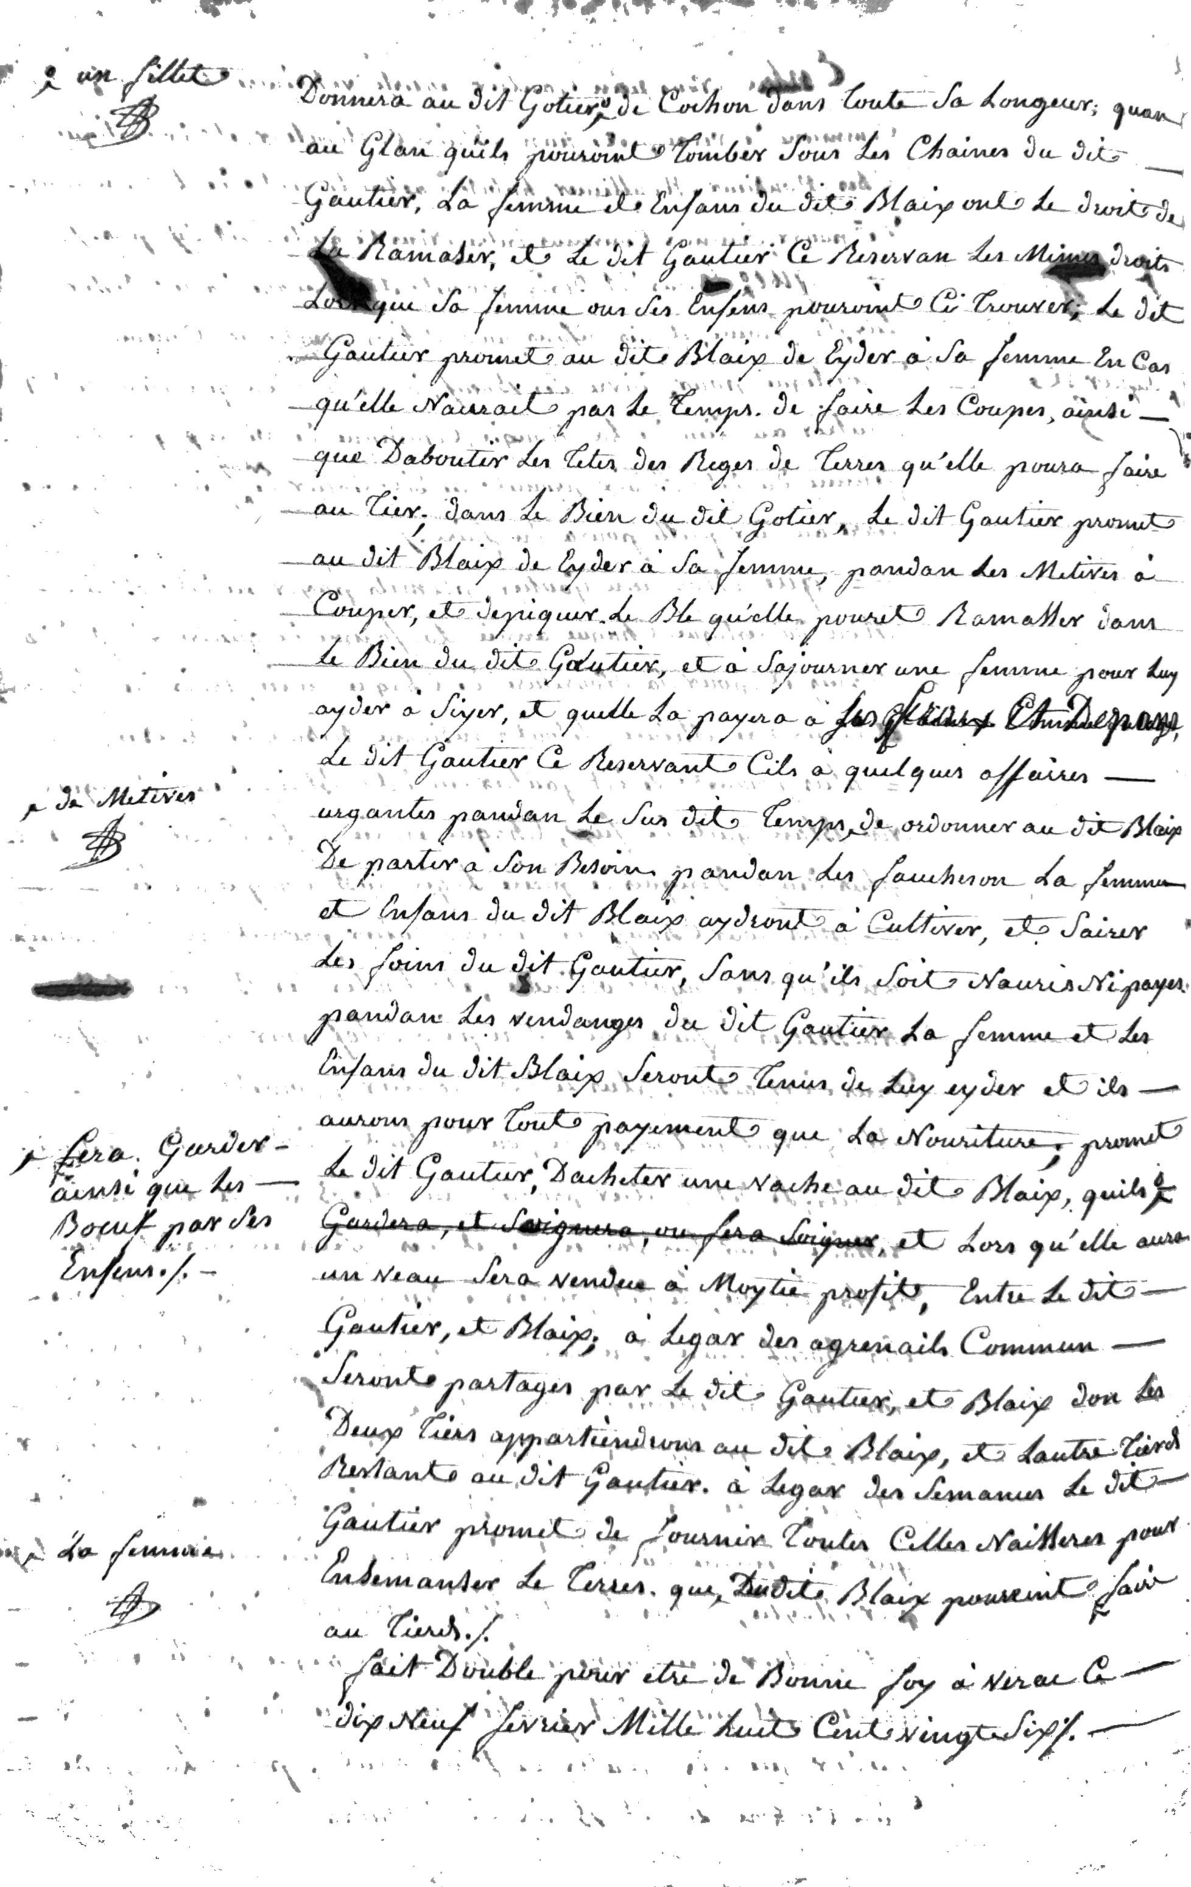 un fillet
Donnera au dit Gotier, de Cochon dans toute Sa Longeur; quan
au Glan quils pouroint tomber Sous Les Chaines du dit —
Gautier, La femme et Enfans du dit Blaix ont Le droit de
La Ramaser, et Le dit Gautier Ce Reservan Les Mimes droits
Lorsque Sa femme ou Ses Enfens pouroint Ci trouver; Le dit
Gautier promet au dit Blaix de Eyder a Sa femme En Cas
qu'elle Naurait pas Le temps. de faire Les Coupes, ainsi —
que Daboutir Les tetes des Reges de terres qu'elle poura faire
au tier; dans Le Bien du dit Gotier, Le dit Gautier promet
au dit Blaix de Eyder à Sa femme, pandan Les Metives à
Couper, et depiquer Le Ble qu'elle pouret Ramasser dans
Le Bien du dit Gautier, et à Sajourner une femme pour Luy
ayder à Siyer, et quelle La payera a
Le dit Gautier Ce Reservant Cils à quelques affaires —
de Metives
urgantes pandan Le Sus dit temps, de ordonner au dit Blaix
De partir a Son Besoin pandan Les faucheson La femme
et Enfans du dit Blaix aydront à Cultiver, et Sairer
Les foins du dit Gautier, Sans qu'ils Soit Nauris Ni payes.
pandan Les vendanges du dit Gautier La femme et Les
Enfans du dit Blaix Seront tenus de Luy eyder et ils —
aurons pour tout payement que La Nouriture; promet
fera Garder —
ainsi que Les —
Boeuf par Ses
Enfens ./. —
Le dit Gautier, Dacheter une vache au dit Blaix, quils
Gardera, et Soignera, ou fera Soigner, et Lors qu'elle aura
un veau Sera vendue a Moytie profit, Entre Le dit —
Gautier, et Blaix; a Legar des agrenails Commun —
Seront partages par Le dit Gautier, et Blaix don Les
Deux tiers appartiendrons au dit Blaix, et Lautre tierds
Restant au dit Gautier. à Legar des Semances Le dit —
Gautier promet de fournir toutes Celles Naisseres pour
La femme
Ensemanser Le terres. que, Dudit Blaix pouroint faire
au tierds ./.
fait Double pour etre de Bonne foy a verac Ce —
dix Neuf fevrier Mille huit Cent vingt Six ./. —